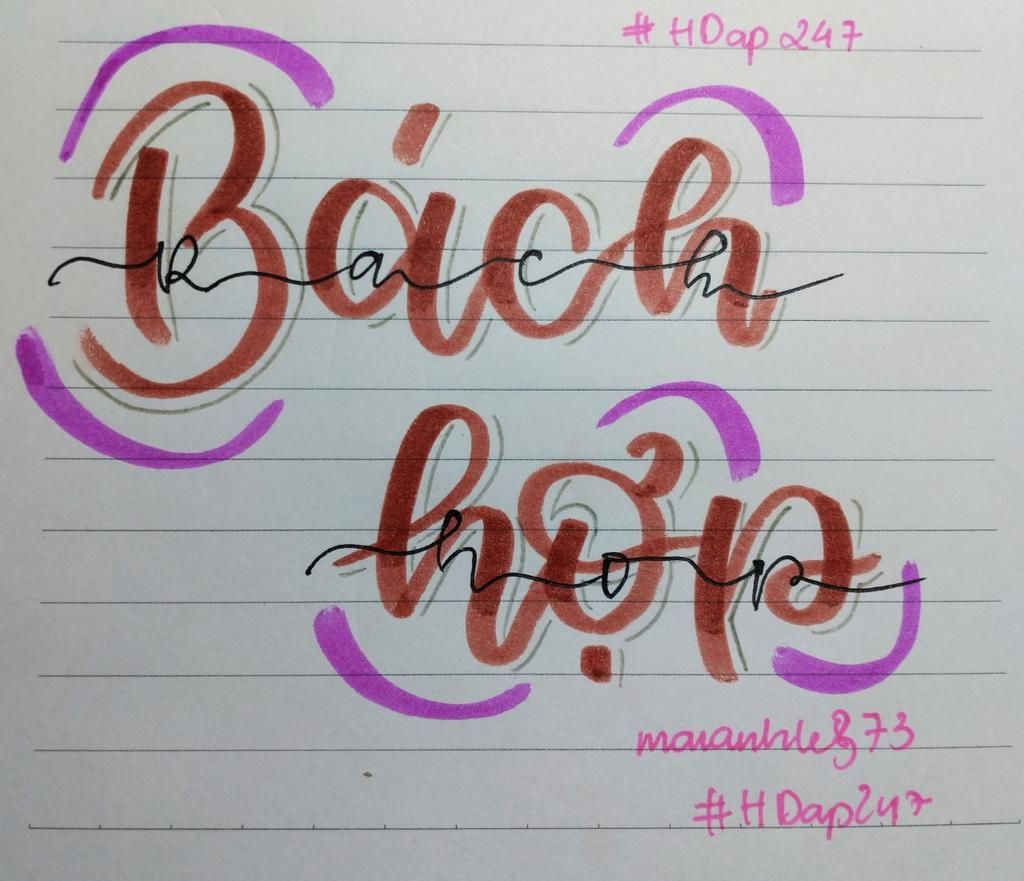 #HDap247
Bách
Bach
hợp
hop
maianhle873
#HDap247